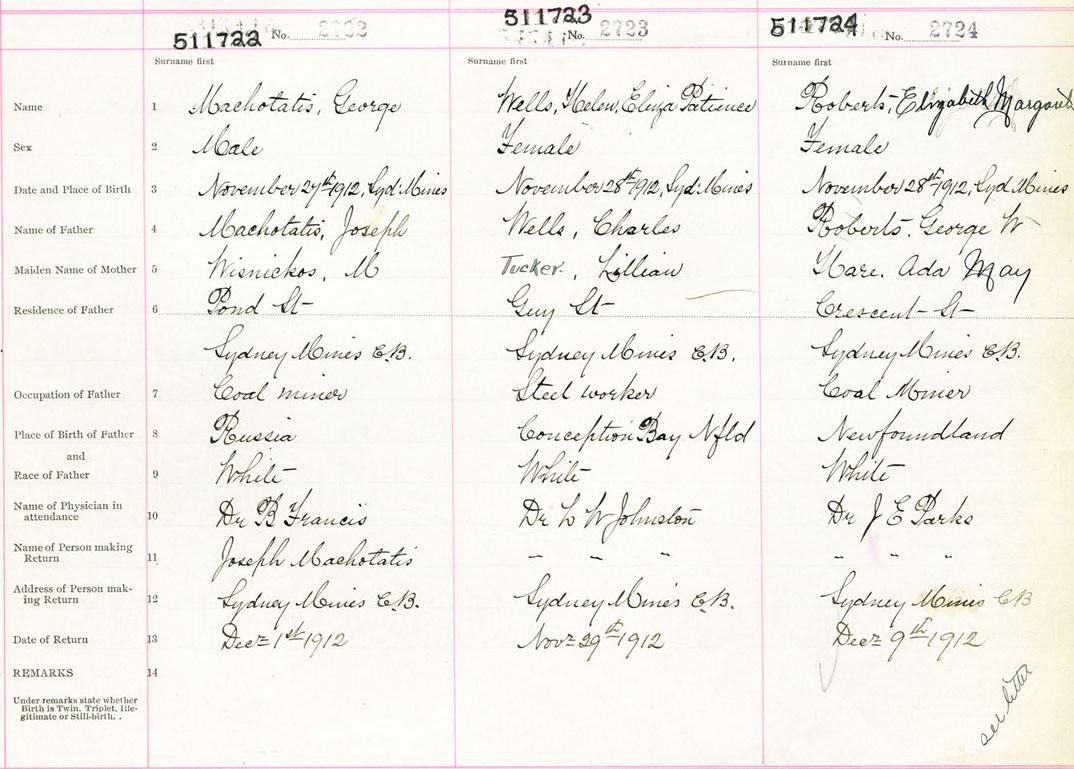 511722 No. 2722 511723 No. 2723 511724 No. 2724
Surname first Surname first Surname first
Name 1 Machotatis, George Wells, Helen, Eliza Patience Roberts, Elizabeth Margaret
Sex 2 Male Female Female
Date and Place of Birth 3 November 27th 1912, Syd. Mines November 28th 1912, Syd. Mines November 28th 1912, Syd Mines
Name of Father 4 Machotatis, Joseph Wells, Charles Roberts. George W
Maiden Name of Mother 5 Wisnickos, M Tucker, Lillian Hare. Ada May
Residence of Father 6 Pond St Guy St Crescent St
Sydney Mines C.B. Sydney Mines C.B. Sydney Mines C.B.
Occupation of Father 7 Coal miner Steel worker Coal Miner
Place of Birth of Father 8 Russia Conception Bay Nfld Newfoundland
and
Race of Father 9 White White White
Name of Physician in
attendance 10 Dr B Francis Dr L W Johnston Dr J E Parks
Name of Person making
Return 11 Joseph Machotatis " " " " " "
Address of Person mak-
ing Return 12 Sydney Mines C.B. Sydney Mines C.B. Sydney Mines CB
Date of Return 13 Decr 1st 1912 Novr 29th 1912 Decr 9th 1912
REMARKS 14
Under remarks state whether
Birth is Twin, Triplet, Ille-
gitimate or Still-birth. .
see letter